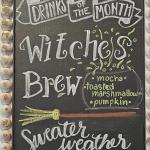 DRINKS OF THE MONTH
Witches
Brew
mocha
toasted
marshmallow
pumpkin
Sweater
weather